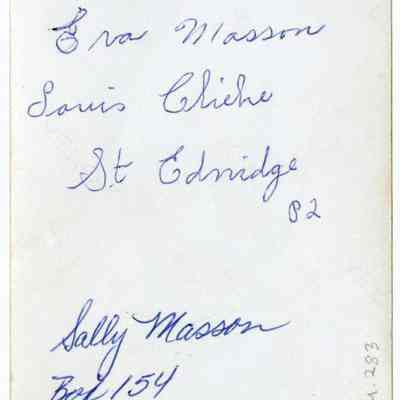 Eva Masson
Louis Cliche
St Edwidge
P2
Sally Masson
Box 154
.283